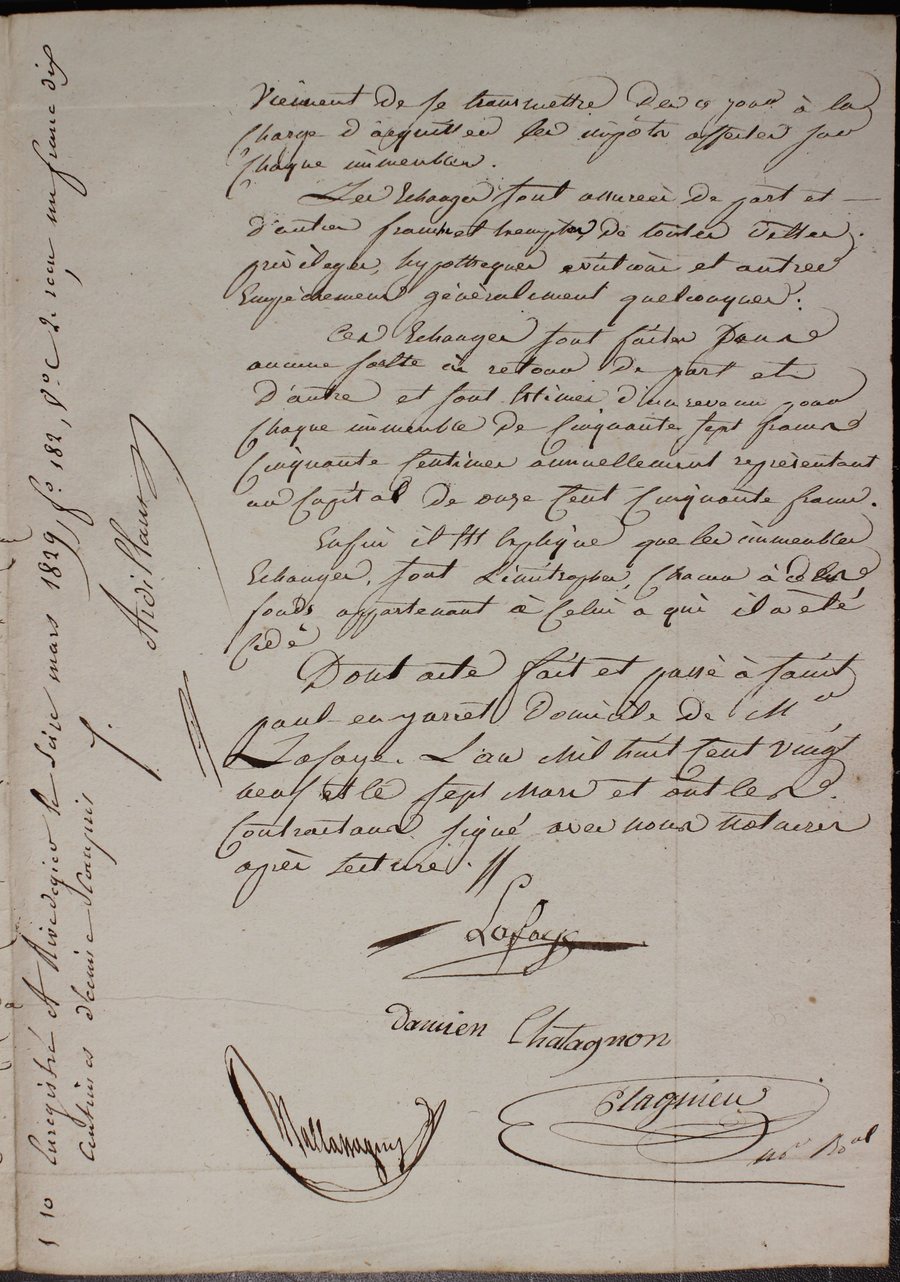 viennent de se transmettre de ce jour à la
charge d'acquitter les impôts affectés sur
chaque immeubles.
Les Echanges sont assurées de part et
d'autres francs et exempts, de toutes dettes,
privileges, hypotheques evictions et autres
Empechements généralement quelconques.
Ces Echanges sont faites sans
aucune soulte ni retour de part et
d'autre et sont estimés d'un revenu pour
chaque immeuble de Cinquante sept francs
Cinquante Centimes annuellement représentant
un Capital de onze Cent Cinquante francs.
Enfin il est Expliqué que les immeubles
Echangés, sont Limitrophes, chacun à
fonds appartenant à Celui a qui il a été
Cédé
Dont acte fait et passé à saint
paul en jarret Domicile de Mr
Lafaye. L'an Mil huit Cent vingt
neuf et le sept Mars et ont les
Contractans signé avec nous Notaires
après lecture.
Lafaye
Damien Chatagnon
Mallassagny
Plagnieu
no. Roal
1 10 Enregistré A Rivedegier le seize mars 1829, fo. 182, Vo. C 2. recu un franc dix
Centimes dixieme Compris